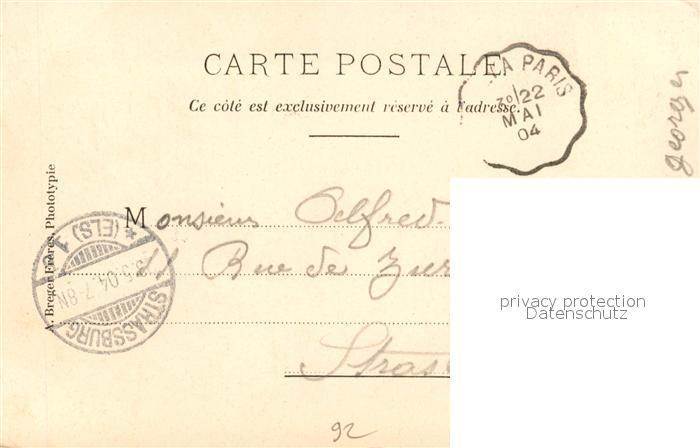 CARTE POSTALE
Ce côté est exclusivement réservé à l'adresse.
A PARIS
22
MAI
04
georges
A. Breger Frères, Phototypie
Monsieur Alfred
11 Rue de Zur
Stras
STRASSBURG
.5.04.7-8N
* (ELS) 1
privacy protection
Datenschutz
92